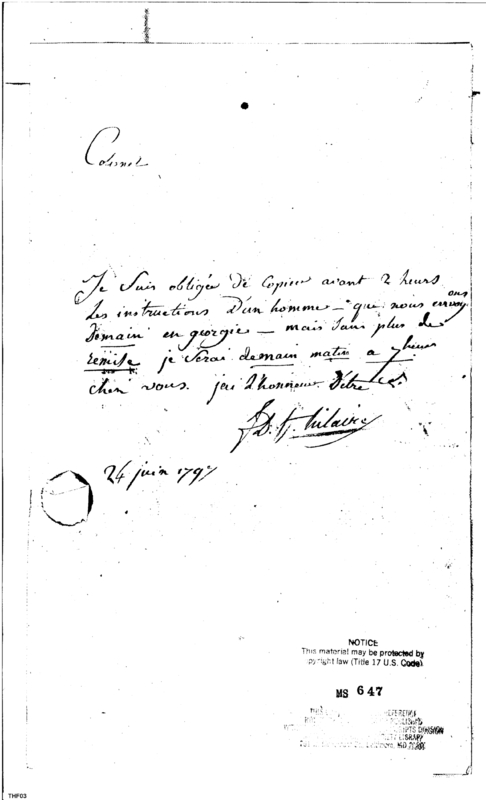 Colonel
Je Suis obligée de Copier avant 2 heurs
des instructions D'un homme - que nous envoyons
Demain en georgie - mais Sans plus de
remise je Serai demain matin a 7 heures
chez vous. jai l'honneur D'être &.
D. St. hilaire
24 juin 1797
NOTICE
This material may be protected by
copyright law (Title 17 U.S. Code)
MS 647
DIVISION
LIBRARY
THF03